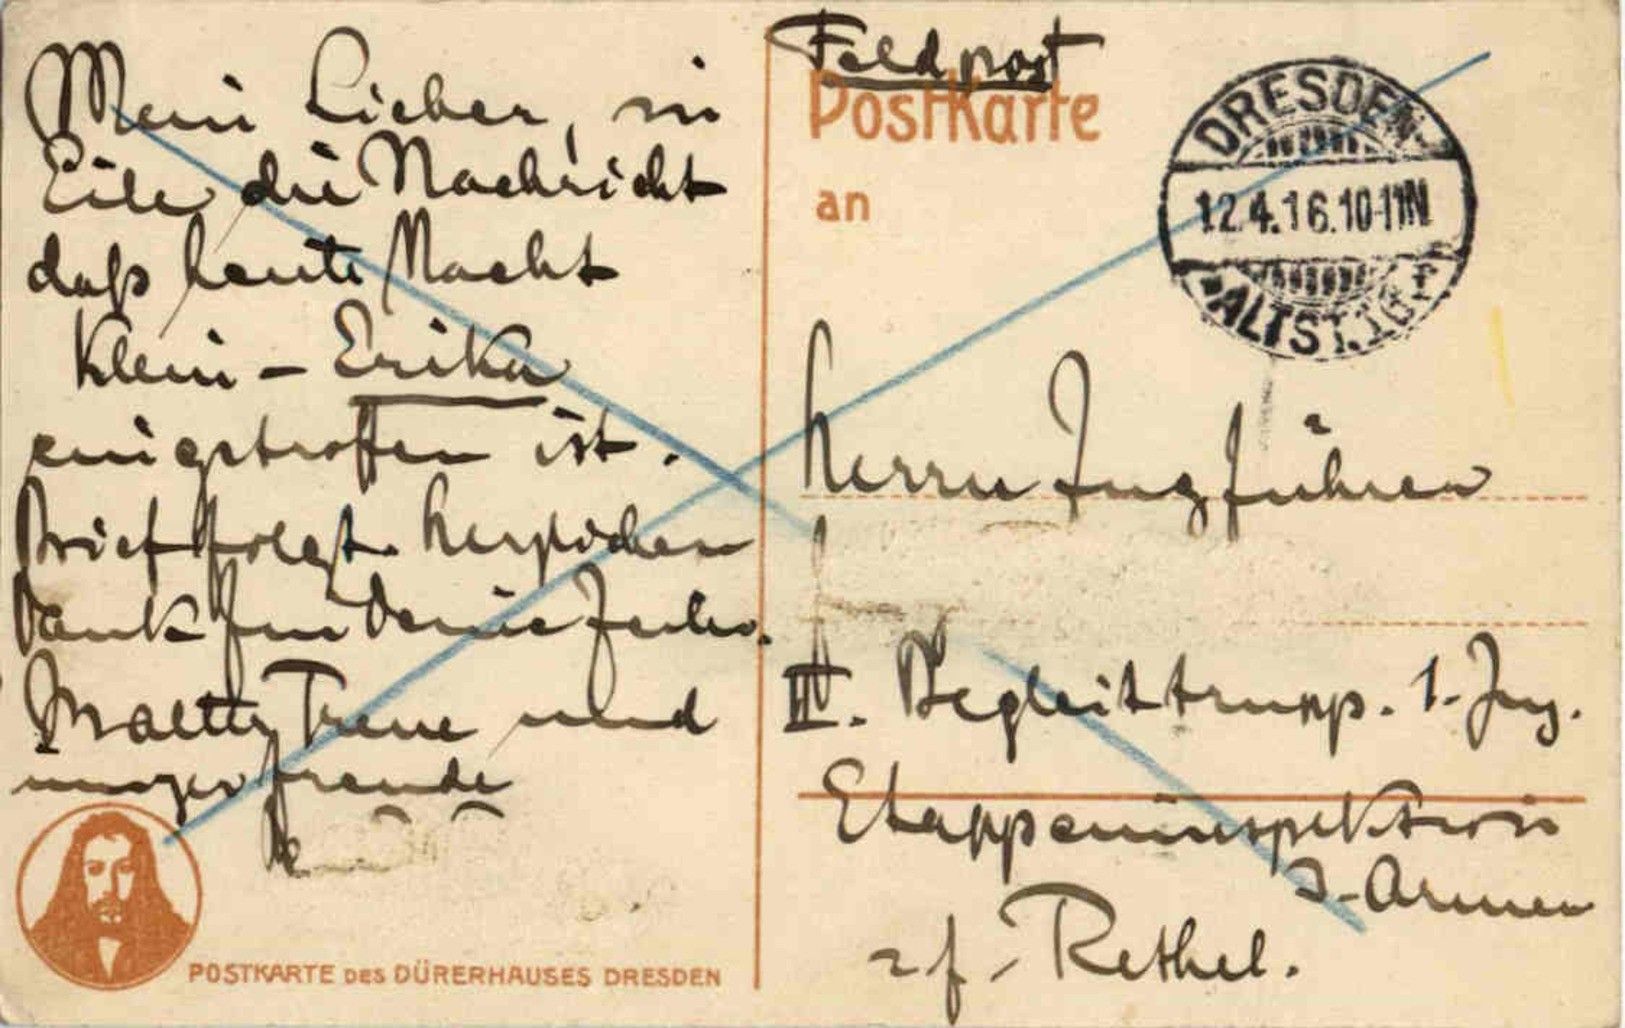 Mein Lieber, in
Eile die Nachricht
daß heute Nacht
Klein-Erika
eingetroffen ist.
Brief folgt. Herzlichen
Dank für Deine Zeilen.
Treue und
Feldpost
Postkarte
an
DRESDEN
12.4.16.10-11N
ALTST.
Herrn Zugführer
III. Begleittrupp. 1. Zug.
Etappeninspektion
3. Armee
Rethel.
POSTKARTE DES DÜRERHAUSES DRESDEN